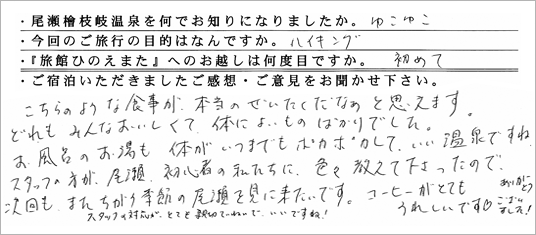 ・尾瀬檜枝岐温泉を何でお知りになりましたか。ゆこゆこ
・今回のご旅行の目的はなんですか。ハイキング
・『旅館ひのえまた』へのお越しは何度目ですか。初めて
・ご宿泊いただきましたご感想・ご意見をお聞かせ下さい。
こちらのような食事が、本当のぜいたくだなぁと思えます。
どれもみんなおいしくて、体によいものばかりでした。
お風呂のお湯も体がいつまでもポカポカして、いい温泉ですね
スタッフの方が、尾瀬、初心者の私たちに、色々教えて下さったので、
次回も、またちがう季節の尾瀬を見に来たいです。コーヒーがとても
うれしいです♡
スタッフの対応が、とても親切でていねいで、いいですね!
ありがとう
ございました!